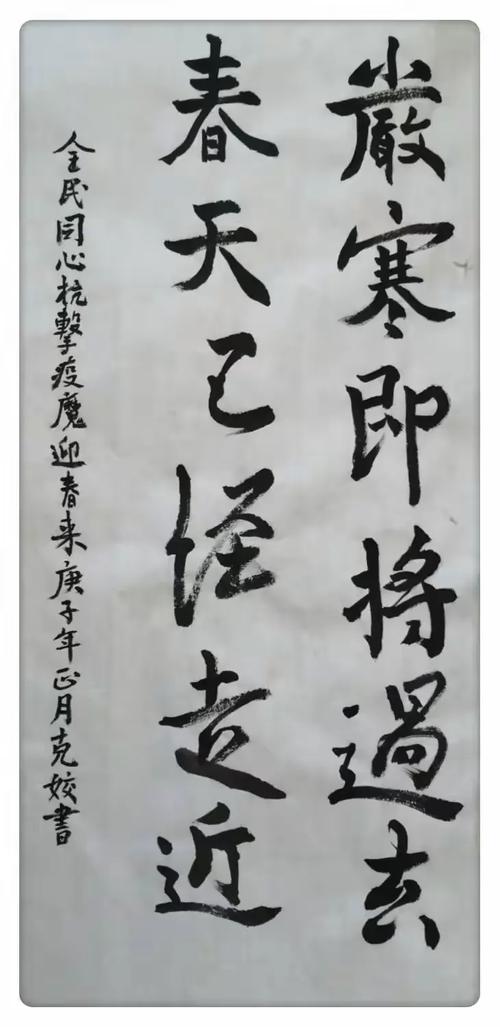 嚴寒即將過去
春天已经走近
全民同心抗擊疫魔迎春来庚子年正月克姣書